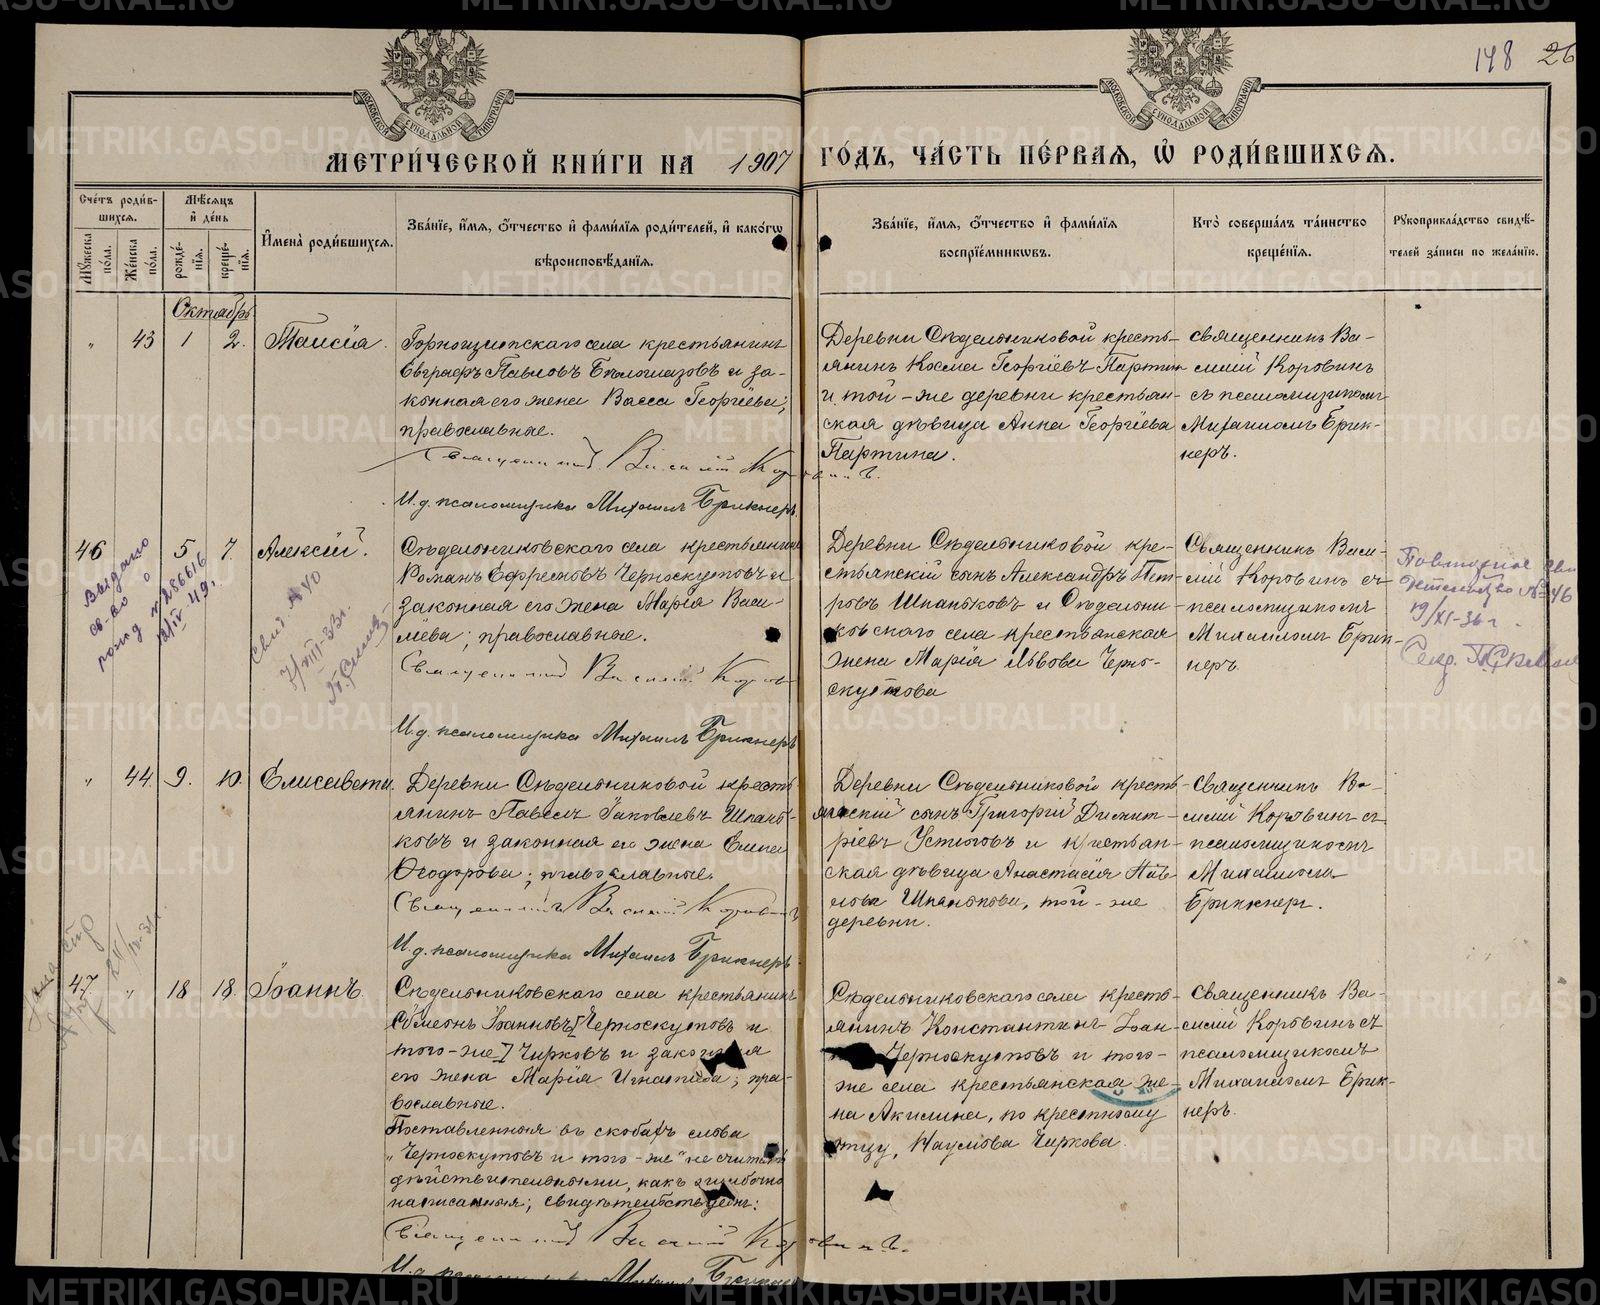 148 26
МОСКОВСКОЙ СѴНОДАЛЬНОЙ ТИПОГРАФІИ
МОСКОВСКОЙ СѴНОДАЛЬНОЙ ТИПОГРАФІИ
МЕТРИ́ЧЕСКОЙ КНИ́ГИ НА 1907 ГО́ДЪ, ЧА́СТЬ ПЕ́РВАѦ, Ѽ РОДИ́ВШИХСѦ.
Сче́тъ роди́в-
шихсѧ.
Мꙋ́жеска по́ла.
Же́нска по́ла.
Мѣ́сѧцъ
и҆ де́нь
рожде́-
нїѧ.
креще́-
нїѧ.
И҆мена̀ роди́вшихсѧ.
Зва́нїе, и҆́мѧ, ѻ҆́тчество и҆ фами́лїѧ роди́телей, и҆ како́гѡ
вѣроисповѣ́данїѧ.
Зва́нїе, и҆́мѧ, ѻ҆́тчество и҆ фами́лїѧ
воспрїе́мникѡвъ.
Кто̀ соверша́лъ та́инство
креще́нїѧ.
Рꙋкоприкла́дство свидѣ́-
телей за́писи по жела́нїю.
Октябрь
" 43 1 2. Таисія.
Горнощитскаго села крестьянинъ
Евграфъ Павловъ Бѣлоглазовъ и за-
конная его жена Васса Георгіева;
православные.
Священникъ Василій Коровинъ.
И.д. псаломщика Михаилъ Брикнеръ
Деревни Сѣдельниковой кресть-
янинъ Косма Георгіевъ Партин
и той-же деревни крестьян-
ская дѣвица Анна Георгіева
Партина.
Священникъ Ва-
силій Коровинъ
съ псаломщикомъ
Михаиломъ Брик-
неръ.
46 5 7. Алексій.
Выдано
св-во о
рожд №286616
49.
VIII-33г.
Сѣдельниковскаго села крестьянинъ
Романъ Ефремовъ Черноскутовъ и
законная его жена Марія Васи-
льева; православные.
Священникъ Василій Коров
И.д. псаломщика Михаилъ Брикнеръ
Деревни Сѣдельниковой кре-
стьянскій сынъ Александръ Пет-
ровъ Шпаньковъ и Сѣдельни-
ковскаго села крестьянская
жена Марія Львова Черно-
скутова
Священникъ Васи-
лій Коровинъ съ
псаломщикомъ
Михаиломъ Брик-
неръ.
Повторное сви
детельство № 46
19/XI-36 г.
Секр.
" 44 9. 10. Елисавета.
Деревни Сѣдельниковой кресть
янинъ Павелъ Іаковлевъ Шпань-
ковъ и законная его жена Елена
Ѳеодорова; православные.
Священникъ Василій Коровинъ
И.д. псаломщика Михаилъ Брикнеръ
Деревни Сѣдельниковой кресть
янскій сынъ Григорій Димит-
ріевъ Устюговъ и крестьян-
ская дѣвица Анастасія Пав-
лова Шпанькова, той-же
деревни.
Священникъ Ва-
силій Коровинъ съ
псаломщикомъ
Михаиломъ
Брикнеръ.
47 " 18 18. Іоаннъ.
Сѣдельниковскаго села крестьянинъ
Сѵмеонъ Іоанновъ [Черноскутовъ и
того-же] Чирковъ и законная
его жена Марія Игнатіева; пра-
вославные.
Поставленныя въ скобахъ слова
„Черноскутовъ и того-же" не считать
дѣйствительными, какъ ошибочно
написанныя; свидѣтельствуемъ:
Священникъ Василій Коровинъ.
И.д. псаломщика Михаилъ Брикнеръ
Сѣдельниковскаго села кресть-
янинъ Константинъ Іоан-
Черноскутовъ и того-
же села крестьянская же-
на Акилина, по крестному
отцу, Наумова Чиркова.
Священникъ Ва-
силій Коровинъ съ
псаломщикомъ
Михаиломъ Брик-
неръ.
METRIKI.GASO-URAL.RU